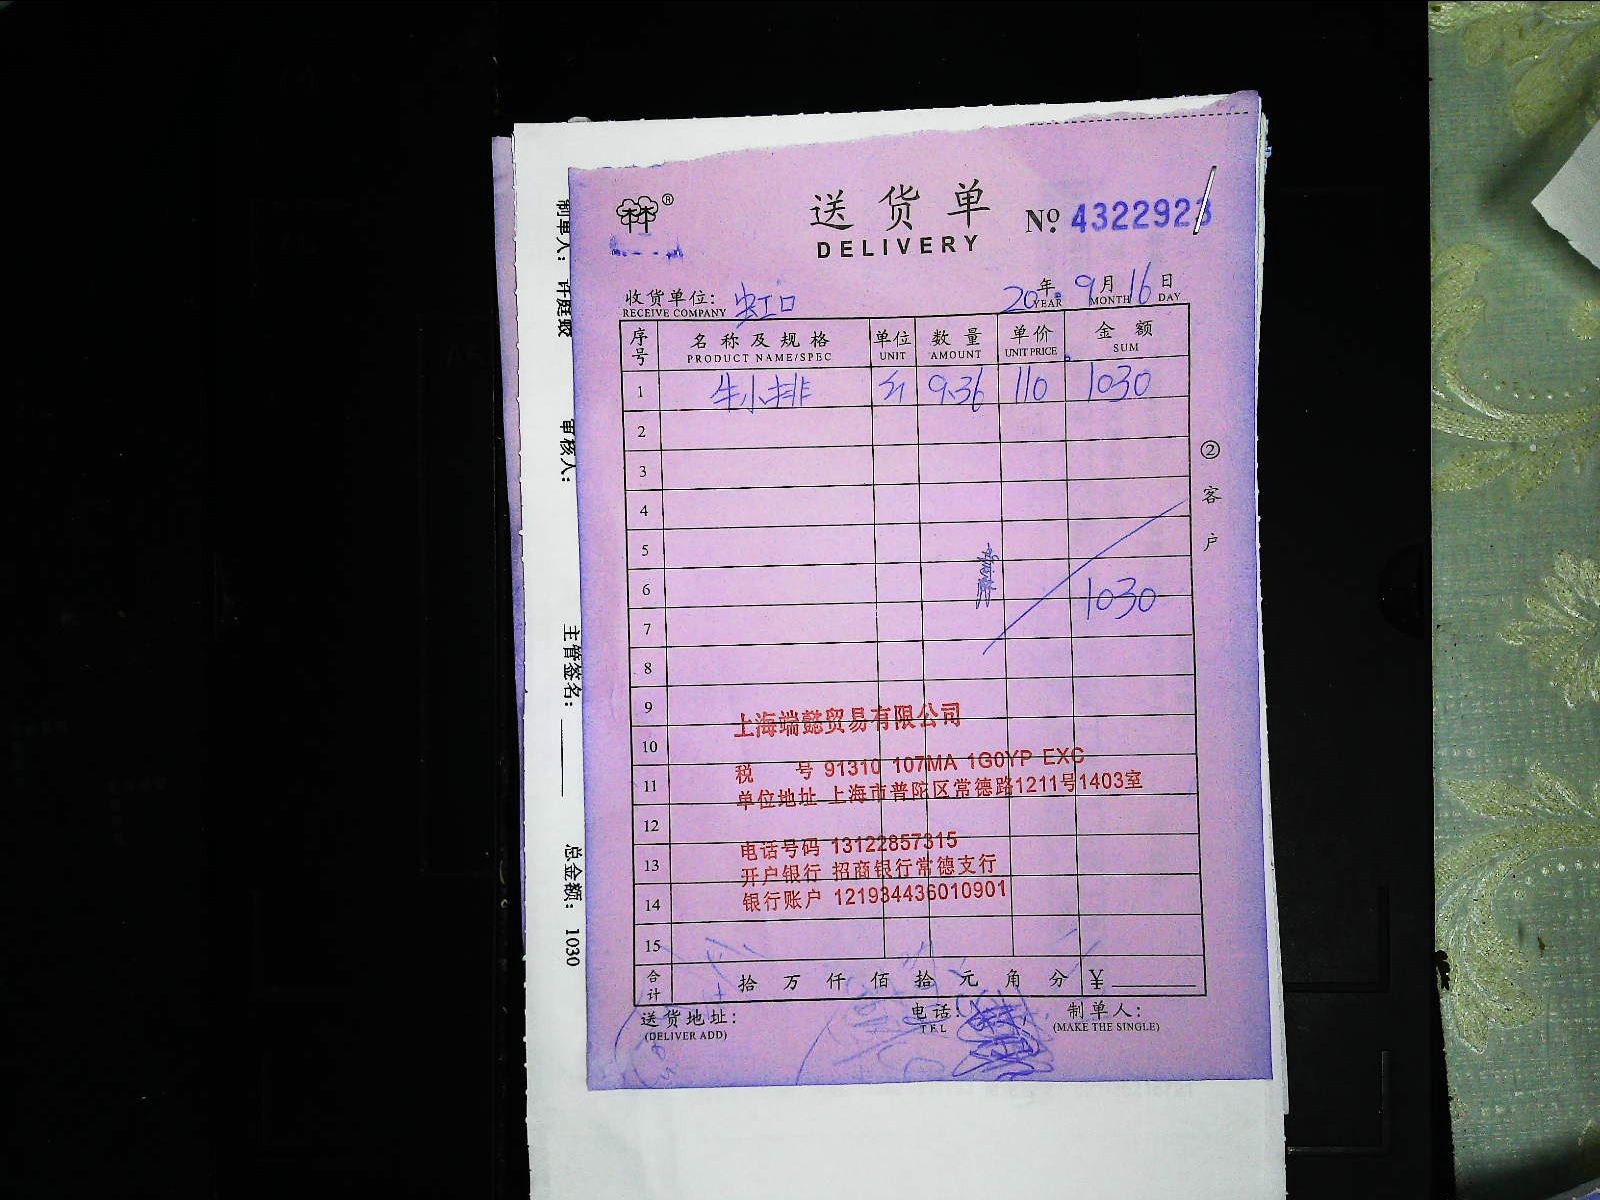 林®
送货单
DELIVERY
№ 4322923
收货单位: 虹口
RECEIVE COMPANY
20年 9月 16日
YEAR MONTH DAY
序号 名称及规格 单位 数量 单价 金额
PRODUCT NAME/SPEC UNIT AMOUNT UNIT PRICE SUM
1 牛小排 斤 9.36 110 1030
2
3
4
5
6 1030
7
8
9
上海端懿贸易有限公司
10
税 号 91310 107MA 1G0YP EXC
11
单位地址 上海市普陀区常德路1211号1403室
12
电话号码 13122857315
13
开户银行 招商银行常德支行
14
银行账户 121934436010901
15
合计 拾 万 仟 佰 拾 元 角 分 ¥
送货地址: 电话: 制单人:
(DELIVER ADD) TEL (MAKE THE SINGLE)
②客户
制单人:
审核人:
主管签名:
总金额: 1030